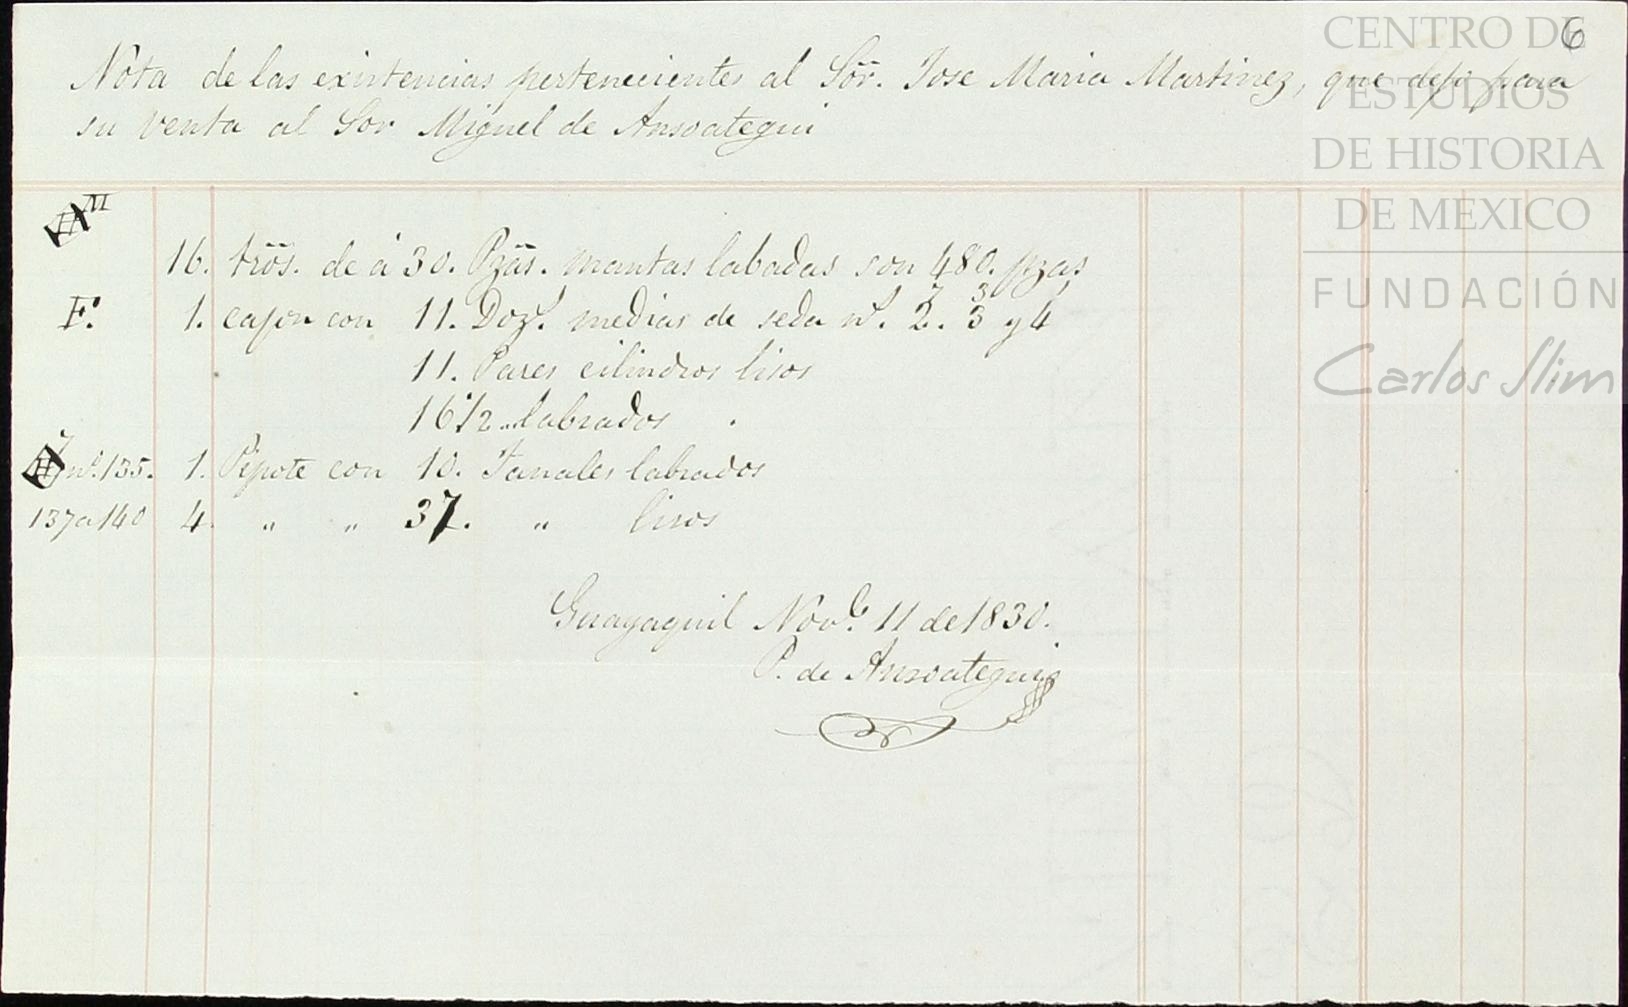 6
Nota de las existencias pertenecientes al Sõr. Jose Maria Martinez, que dejo para
su venta al Sor Miguel de Ansoategui
M
16. trõs. de á 30. Pzãs. mantas labadas son 480. pzas
F. 1. cajon con 11. Dozs. medias de seda nº. 2. 3 y 4
7 3
11. Pares cilindros lisos
16 1/2 „ labrados
nº. 135. 1. Pipote con 10. Fanales labrados
137 a 140 4 „ „ 37. „ lisos
Guayaquil Nove. 11 de 1830.
P. de Ansoategui
CENTRO DE
ESTUDIOS
DE HISTORIA
DE MEXICO
FUNDACIÓN
Carlos Slim